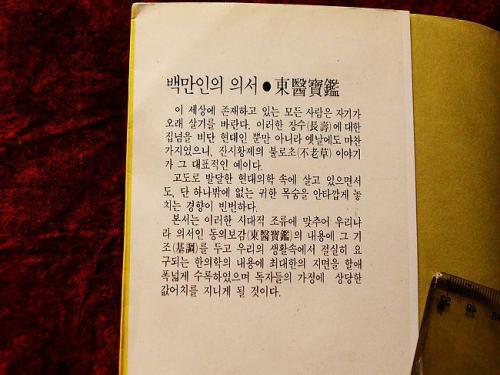 백만인의 의서●東醫寶鑑
이 세상에 존재하고 있는 모든 사람은 자기가
오래 살기를 바란다. 이러한 장수(長壽)에 대한
집념을 비단 현대인 뿐만 아니라 옛날에도 마찬
가지였으니, 진시황제의 불로초(不老草) 이야기
가 그 대표적인 예이다.
고도로 발달한 현대의학 속에 살고 있으면서
도, 단 하나밖에 없는 귀한 목숨을 안타깝게 놓
치는 경향이 빈번하다.
본서는 이러한 시대적 조류에 맞추어 우리나
라 의서인 동의보감(東醫寶鑑)의 내용에 그 기
조(基調)를 두고 우리의 생활속에서 절실히 요
구되는 한의학의 내용에 최대한의 지면을 할애
폭넓게 수록하였으며 독자들의 가정에 상당한
값어치를 지니게 될 것이다.